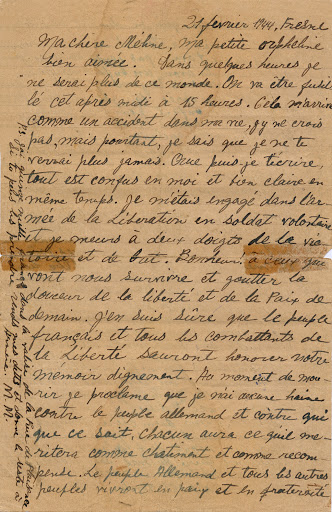 21 fevrier 1944, Fresne
Ma chère Méline, ma petite orpheline
bien aimée. Dans quelques heures je
ne serai plus de ce monde. On va être fusil
lé cet après midi à 15 heures. Cela m'arrive
comme un accident dans ma vie, j'y ne crois
pas, mais pourtant, je sais que je ne te
verrai plus jamais. Que puis-je t'écrire,
tout est confus en moi et bien claire en
même temps. Je m'étais engagé dans l'ar-
mée de la Libération en soldat volontaire
et je meurs à deux doigts de la vic-
toire et du but. Bonheur! à ceux qui
vont nous survivre et goutter la
douceur de la liberté et de la Paix de
demain. J'en suis sûre que le peuple
français et tous les combattants de
la Liberté sauront honorer notre
memoir dignement. Au moment de mou-
rir je proclame que je n'ai aucune haine
contre le peuple allemand et contre qui
que ce soit. Chacun aura ce qu'il me-
ritera comme châtiment et comme recom
pense. Le peuple Allemand et tous les autres
peuples vivront en paix et en fraternité
quinze mille francs dans la valise